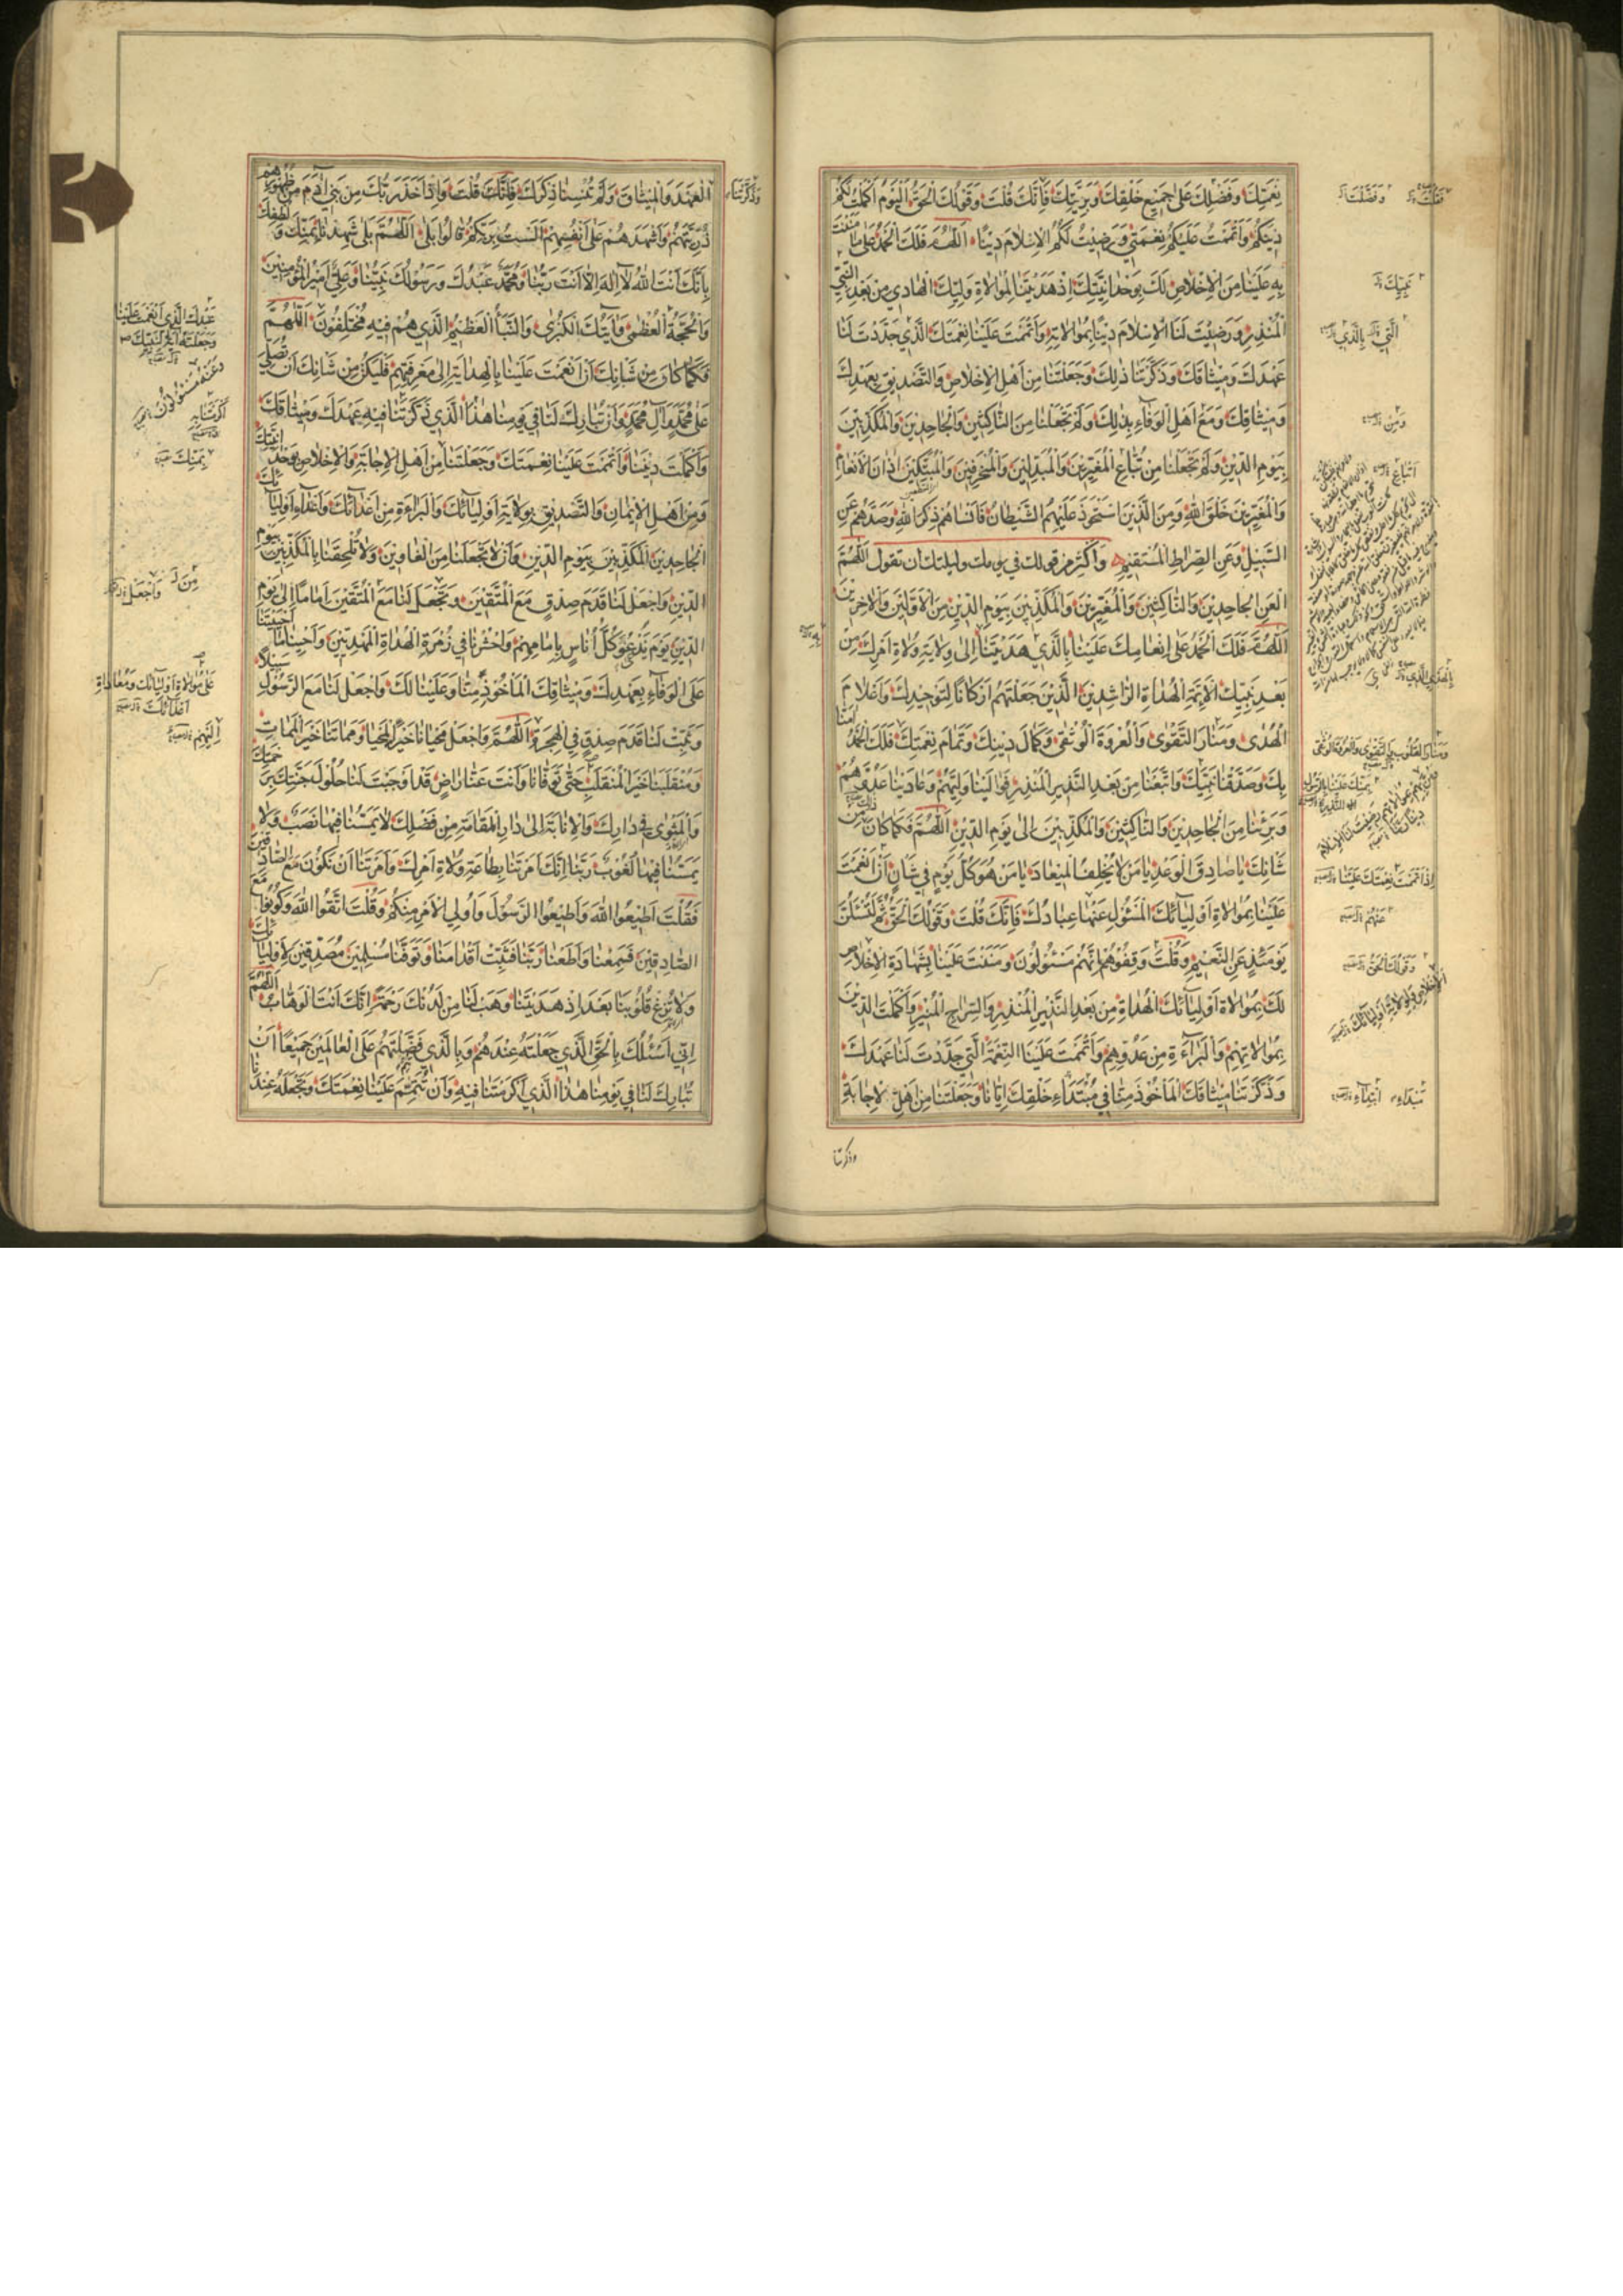 نِعْمَتِكَ وَفَضْلِكَ عَلىٰ جَمِيْعِ خَلْقِكَ وَبَرِيَّتِكَ فَاِنَّكَ قُلْتَ وَقَوْلُكَ الْحَقُّ اَلْيَوْمَ اَكْمَلْتُ لَكُمْ
دِيْنَكُمْ وَاَتْمَمْتُ عَلَيْكُمْ نِعْمَتِيْ وَرَضِيْتُ لَكُمُ الْاِسْلَامَ دِيْنًا اَللّٰهُمَّ فَلَكَ الْحَمْدُ عَلىٰ مَا مَنَنْتَ
بِهِ عَلَيْنَا مِنَ الْاِخْلَاصِ لَكَ بِوَحْدَانِيَّتِكَ اِذْ هَدَيْتَنَا لِمُوَالَاةِ وَلِيِّكَ الْهَادِيْ مِنْ بَعْدِ النَّبِيِّ
الْمُنْذِرِ وَرَضِيْتَ لَنَا الْاِسْلَامَ دِيْنًا بِمُوَالَاتِهِ وَاَتْمَمْتَ عَلَيْنَا نِعْمَتَكَ الَّذِيْ جَدَّدْتَ لَنَا
عَهْدَكَ وَمِيْثَاقَكَ وَذَكَّرْتَنَا ذٰلِكَ وَجَعَلْتَنَا مِنْ اَهْلِ الْاِخْلَاصِ وَالتَّصْدِيْقِ بِعَهْدِكَ
وَمِيْثَاقِكَ وَمِنْ اَهْلِ الْوَفَاءِ بِذٰلِكَ وَلَمْ تَجْعَلْنَا مِنَ النَّاكِثِيْنَ وَالْجَاحِدِيْنَ وَالْمُكَذِّبِيْنَ
بِيَوْمِ الدِّيْنِ وَلَمْ تَجْعَلْنَا مِنْ تُبَّاعِ الْمُغَيِّرِيْنَ وَالْمُبَدِّلِيْنَ وَالْمُنْحَرِفِيْنَ وَالْمُبَتِّكِيْنَ اٰذَانَ الْاَنْعَامِ
وَالْمُغَيِّرِيْنَ خَلْقَ اللهِ وَمِنَ الَّذِيْنَ اسْتَحْوَذَ عَلَيْهِمُ الشَّيْطَانُ فَاَنْسَاهُمْ ذِكْرَ اللهِ وَصَدَّهُمْ عَنِ
السَّبِيْلِ وَعَنِ الصِّرَاطِ الْمُسْتَقِيْمِ وَاَكْثِرْ مِنْ قَوْلِكَ فِي يَوْمِكَ وَلَيْلَتِكَ اَنْ تَقُوْلَ اَللّٰهُمَّ
الْعَنِ الْجَاحِدِيْنَ وَالنَّاكِثِيْنَ وَالْمُغَيِّرِيْنَ وَالْمُكَذِّبِيْنَ بِيَوْمِ الدِّيْنِ مِنَ الْاَوَّلِيْنَ وَالْاٰخِرِيْنَ
اَللّٰهُمَّ فَلَكَ الْحَمْدُ عَلىٰ اِنْعَامِكَ عَلَيْنَا بِالَّذِيْ هَدَيْتَنَا اِلىٰ وِلَايَةِ وُلَاةِ اَمْرِكَ مِنْ
بَعْدِ نَبِيِّكَ الْاَئِمَّةِ الْهُدَاةِ الرَّاشِدِيْنَ الَّذِيْنَ جَعَلْتَهُمْ اَرْكَانًا لِتَوْحِيْدِكَ وَاَعْلَامَ
الْهُدىٰ وَمَنَارَ التَّقْوىٰ وَالْعُرْوَةَ الْوُثْقىٰ وَكَمَالَ دِيْنِكَ وَتَمَامَ نِعْمَتِكَ فَلَكَ الْحَمْدُ اٰمَنَّا
بِكَ وَصَدَّقْنَا نَبِيَّكَ وَاتَّبَعْنَا مِنْ بَعْدِ النَّذِيْرِ الْمُنْذِرِ فَوَالَيْنَا وَلِيَّهُمْ وَعَادَيْنَا عَدُوَّهُمْ
وَبَرِئْنَا مِنَ الْجَاحِدِيْنَ وَالنَّاكِثِيْنَ وَالْمُكَذِّبِيْنَ اِلىٰ يَوْمِ الدِّيْنِ اَللّٰهُمَّ فَكَمَا كَانَ مِنْ
شَانِكَ يَا صَادِقَ الْوَعْدِ يَا مَنْ لَا يُخْلِفُ الْمِيْعَادَ يَا مَنْ هُوَ كُلَّ يَوْمٍ فِي شَانٍ اَنْ اَنْعَمْتَ
عَلَيْنَا بِمُوَالَاةِ اَوْلِيَائِكَ الْمَسْئُوْلِ عَنْهَا عِبَادُكَ فَاِنَّكَ قُلْتَ وَقَوْلُكَ الْحَقُّ ثُمَّ لَتُسْئَلُنَّ
يَوْمَئِذٍ عَنِ النَّعِيْمِ وَقُلْتَ وَقِفُوْهُمْ اِنَّهُمْ مَسْئُوْلُوْنَ وَمَنَنْتَ عَلَيْنَا بِشَهَادَةِ الْاِخْلَاصِ
لَكَ بِمُوَالَاةِ اَوْلِيَائِكَ الْهُدَاةِ مِنْ بَعْدِ النَّذِيْرِ الْمُنْذِرِ وَالسِّرَاجِ الْمُنِيْرِ وَاَكْمَلْتَ الدِّيْنَ
بِمُوَالَاتِهِمْ وَالْبَرَاءَةِ مِنْ عَدُوِّهِمْ وَاَتْمَمْتَ عَلَيْنَا النِّعْمَةَ الَّتِيْ جَدَّدْتَ لَنَا عَهْدَكَ
وَذَكَّرْتَنَا مِيْثَاقَكَ الْمَاْخُوْذَ مِنَّا فِي مُبْتَدَاءِ خَلْقِكَ اِيَّانَا وَجَعَلْتَنَا مِنْ اَهْلِ الْاِجَابَةِ
وذكرتنا
وَفَضَّلْتَنَا
نَبِيِّكَ
الَّتِيْ بِالَّذِيْ
وَمِنْ
اَتْبَاعِ
اِذْ اَتْمَمْتَ نِعْمَتَكَ عَلَيْنَا
عَنْهُمْ
وَقَوْلُكَ الْحَقُّ
وَذَكَّرْتَنَا
الْعَهْدَ وَالْمِيْثَاقَ وَلَمْ تُنْسِنَا ذِكْرَكَ فَاِنَّكَ قُلْتَ وَاِذْ اَخَذَ رَبُّكَ مِنْ بَنِيْ اٰدَمَ مِنْ ظُهُوْرِهِمْ
ذُرِّيَّتَهُمْ وَاَشْهَدَهُمْ عَلىٰ اَنْفُسِهِمْ اَلَسْتُ بِرَبِّكُمْ قَالُوْا بَلىٰ اَللّٰهُمَّ بَلىٰ شَهِدْنَا بِمَنِّكَ وَلُطْفِكَ
بِاَنَّكَ اَنْتَ اللهُ لَا اِلٰهَ اِلَّا اَنْتَ رَبُّنَا وَمُحَمَّدٌ عَبْدُكَ وَرَسُوْلُكَ نَبِيُّنَا وَعَلِيٌّ اَمِيْرُ الْمُؤْمِنِيْنَ
وَالْحُجَّةُ الْعُظْمىٰ وَاٰيَتُكَ الْكُبْرىٰ وَالنَّبَأُ الْعَظِيْمُ الَّذِيْ هُمْ فِيْهِ مُخْتَلِفُوْنَ اَللّٰهُمَّ
فَكَمَا كَانَ مِنْ شَانِكَ اَنْ اَنْعَمْتَ عَلَيْنَا بِالْهِدَايَةِ اِلىٰ مَعْرِفَتِهِمْ فَلْيَكُنْ مِنْ شَانِكَ اَنْ تُصَلِّيَ
عَلىٰ مُحَمَّدٍ وَاٰلِ مُحَمَّدٍ وَاَنْ تُبَارِكَ لَنَا فِي يَوْمِنَا هٰذَا الَّذِيْ ذَكَّرْتَنَا فِيْهِ عَهْدَكَ وَمِيْثَاقَكَ
وَاَكْمَلْتَ دِيْنَنَا وَاَتْمَمْتَ عَلَيْنَا نِعْمَتَكَ وَجَعَلْتَنَا مِنْ اَهْلِ الْاِجَابَةِ وَالْاِخْلَاصِ بِوَحْدَانِيَّتِكَ
وَمِنْ اَهْلِ الْاِيْمَانِ وَالتَّصْدِيْقِ بِوِلَايَةِ اَوْلِيَائِكَ وَالْبَرَاءَةِ مِنْ اَعْدَائِكَ وَاَعْدَاءِ اَوْلِيَائِكَ
الْجَاحِدِيْنَ الْمُكَذِّبِيْنَ بِيَوْمِ الدِّيْنِ وَاَنْ لَا تَجْعَلَنَا مِنَ الْغَاوِيْنَ وَلَا تُلْحِقْنَا بِالْمُكَذِّبِيْنَ بِيَوْمِ
الدِّيْنِ وَاجْعَلْ لَنَا قَدَمَ صِدْقٍ مَعَ الْمُتَّقِيْنَ وَتَجْعَلَ لَنَا مَعَ الْمُتَّقِيْنَ اِمَامًا اِلىٰ يَوْمِ
الدِّيْنِ يَوْمَ يُدْعىٰ كُلُّ اُنَاسٍ بِاِمَامِهِمْ وَاحْشُرْنَا فِي زُمْرَةِ الْهُدَاةِ الْمَهْدِيِّيْنَ وَاَحْيِنَا مَا اَحْيَيْتَنَا
عَلَى الْوَفَاءِ بِعَهْدِكَ وَمِيْثَاقِكَ الْمَاْخُوْذِ مِنَّا وَعَلَيْنَا لَكَ وَاجْعَلْ لَنَا مَعَ الرَّسُوْلِ سَبِيْلًا
وَثَبِّتْ لَنَا قَدَمَ صِدْقٍ فِي الْهِجْرَةِ اَللّٰهُمَّ وَاجْعَلْ مَحْيَانَا خَيْرَ الْمَحْيَا وَمَمَاتَنَا خَيْرَ الْمَمَاتِ
وَمُنْقَلَبَنَا خَيْرَ الْمُنْقَلَبِ حَتّىٰ تَوَفَّانَا وَاَنْتَ عَنَّا رَاضٍ قَدْ اَوْجَبْتَ لَنَا حُلُوْلَ جَنَّتِكَ بِرَحْمَتِكَ
وَالْمَثْوىٰ فِي دَارِكَ وَالْاِنَابَةَ اِلىٰ دَارِ الْمُقَامَةِ مِنْ فَضْلِكَ لَا يَمَسُّنَا فِيْهَا نَصَبٌ وَلَا
يَمَسُّنَا فِيْهَا لُغُوْبٌ رَبَّنَا اِنَّكَ اَمَرْتَنَا بِطَاعَةِ وُلَاةِ اَمْرِكَ وَاَمَرْتَنَا اَنْ نَكُوْنَ مَعَ الصَّادِقِيْنَ
فَقُلْتَ اَطِيْعُوا اللهَ وَاَطِيْعُوا الرَّسُوْلَ وَاُولِي الْاَمْرِ مِنْكُمْ وَقُلْتَ اتَّقُوا اللهَ وَكُوْنُوْا مَعَ
الصَّادِقِيْنَ فَسَمِعْنَا وَاَطَعْنَا رَبَّنَا فَثَبِّتْ اَقْدَامَنَا وَتَوَفَّنَا مُسْلِمِيْنَ مُصَدِّقِيْنَ لِاَوْلِيَائِكَ
وَلَا تُزِغْ قُلُوْبَنَا بَعْدَ اِذْ هَدَيْتَنَا وَهَبْ لَنَا مِنْ لَدُنْكَ رَحْمَةً اِنَّكَ اَنْتَ الْوَهَّابُ اَللّٰهُمَّ
اِنِّيْ اَسْئَلُكَ بِالْحَقِّ الَّذِيْ جَعَلْتَهُ عِنْدَهُمْ وَبِالَّذِيْ فَضَّلْتَهُمْ عَلَى الْعَالَمِيْنَ جَمِيْعًا اَنْ
تُبَارِكَ لَنَا فِي يَوْمِنَا هٰذَا الَّذِيْ اَكْرَمْتَنَا فِيْهِ وَاَنْ تُتَمِّمَ عَلَيْنَا نِعْمَتَكَ وَتَجْعَلَهُ عِنْدَنَا
عَبْدُكَ الَّذِيْ اَنْعَمْتَ عَلَيْنَا
بِمَنِّكَ
مِنْ وَاجْعَلْ
عَلىٰ مُوَالَاةِ اَوْلِيَائِكَ وَمُعَادَاةِ
اَعْدَائِكَ